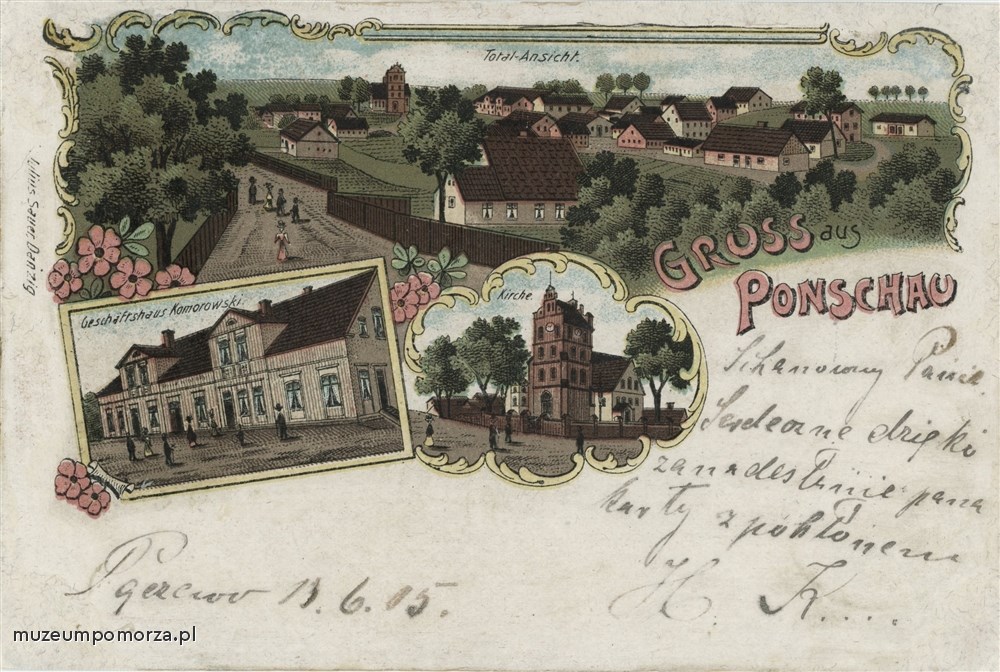 Total-Ansicht.
Julius Sauer, Danzig
GRUSS aus
PONSCHAU
Geschäftshaus Komorowski.
Kirche.
Schanowny Panie
Serdeczne dzięki
za nadesłanie pana
karty z pokłonem
H. K....
13.6.05.
muzeumpomorza.pl